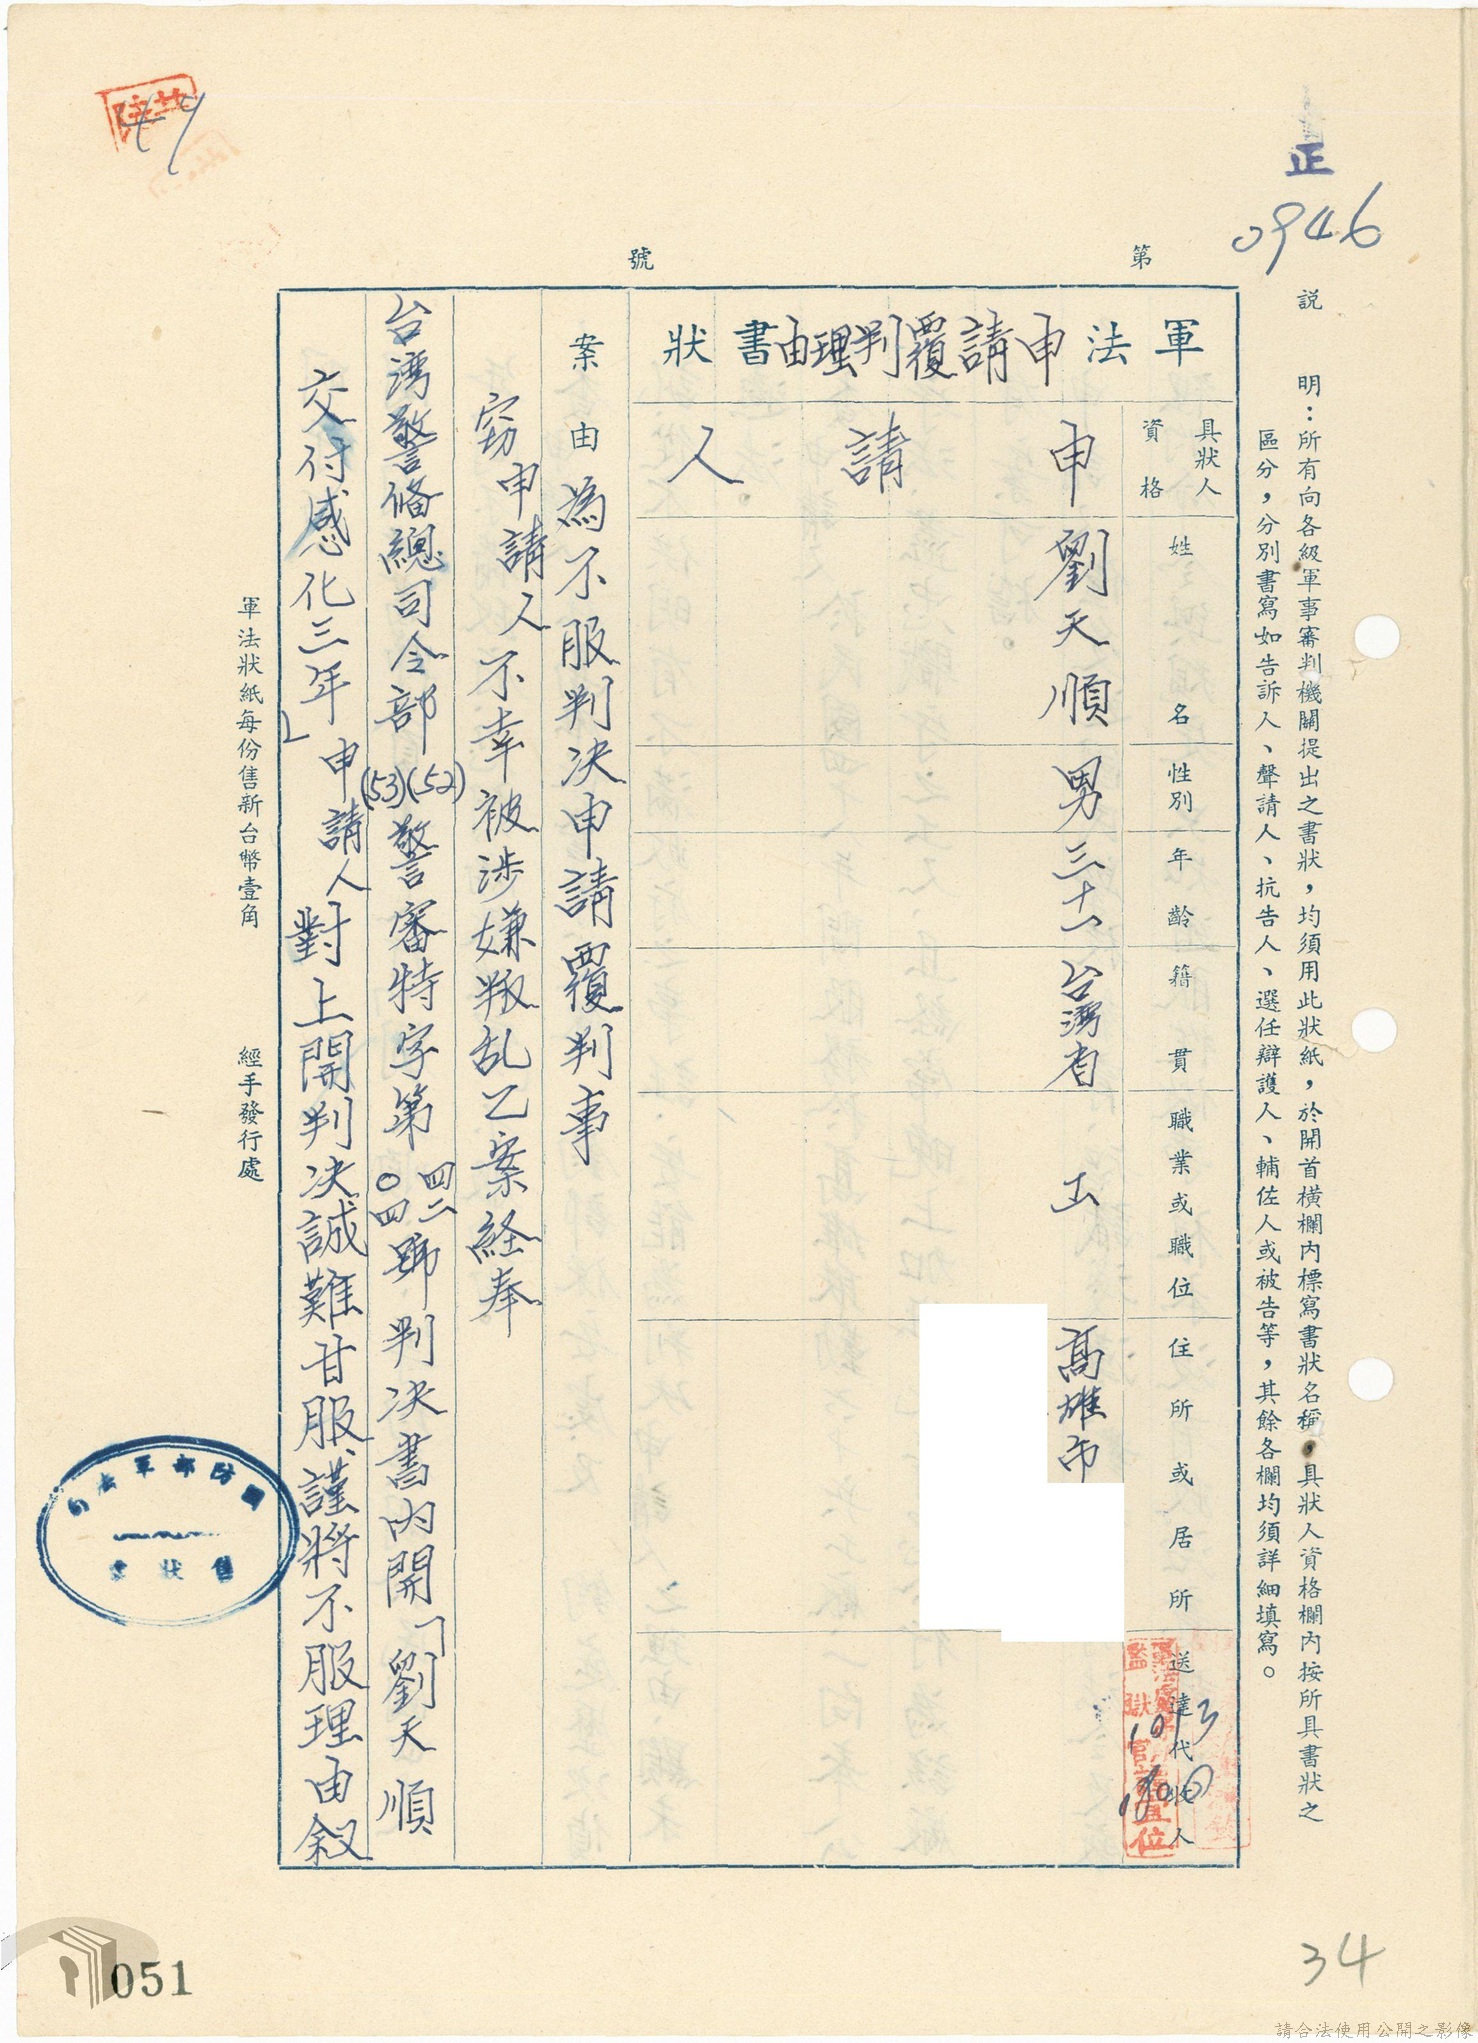 正
0946
說　明：所有向各級軍事審判機關提出之書狀，均須用此狀紙，於開首橫欄內標寫書狀名稱，具狀人資格欄內按所具書狀之
區分，分別書寫如告訴人、聲請人、抗告人、選任辯護人、輔佐人或被告等，其餘各欄均須詳細填寫。
第　號
軍法申請覆判理由書狀
具狀人資格　姓名　性別　年齡　籍貫　職業或職位　住所或居所　送達代收人
申請人　劉天順　男　三十一　台湾省　工　高雄市
10/3
案由　為不服判决申請覆判事
窃申請人不幸被涉嫌叛乱乙案経奉
台湾警俻總司令部(52)(53)警審特字第四二〇四號判决書内開「劉天順
交付感化三年」申請人對上開判决誠難甘服、謹將不服理由叙
軍法狀紙每份售新台幣壹角　經手發行處
國防部軍法局
售狀處
34
051
請合法使用公開之影像